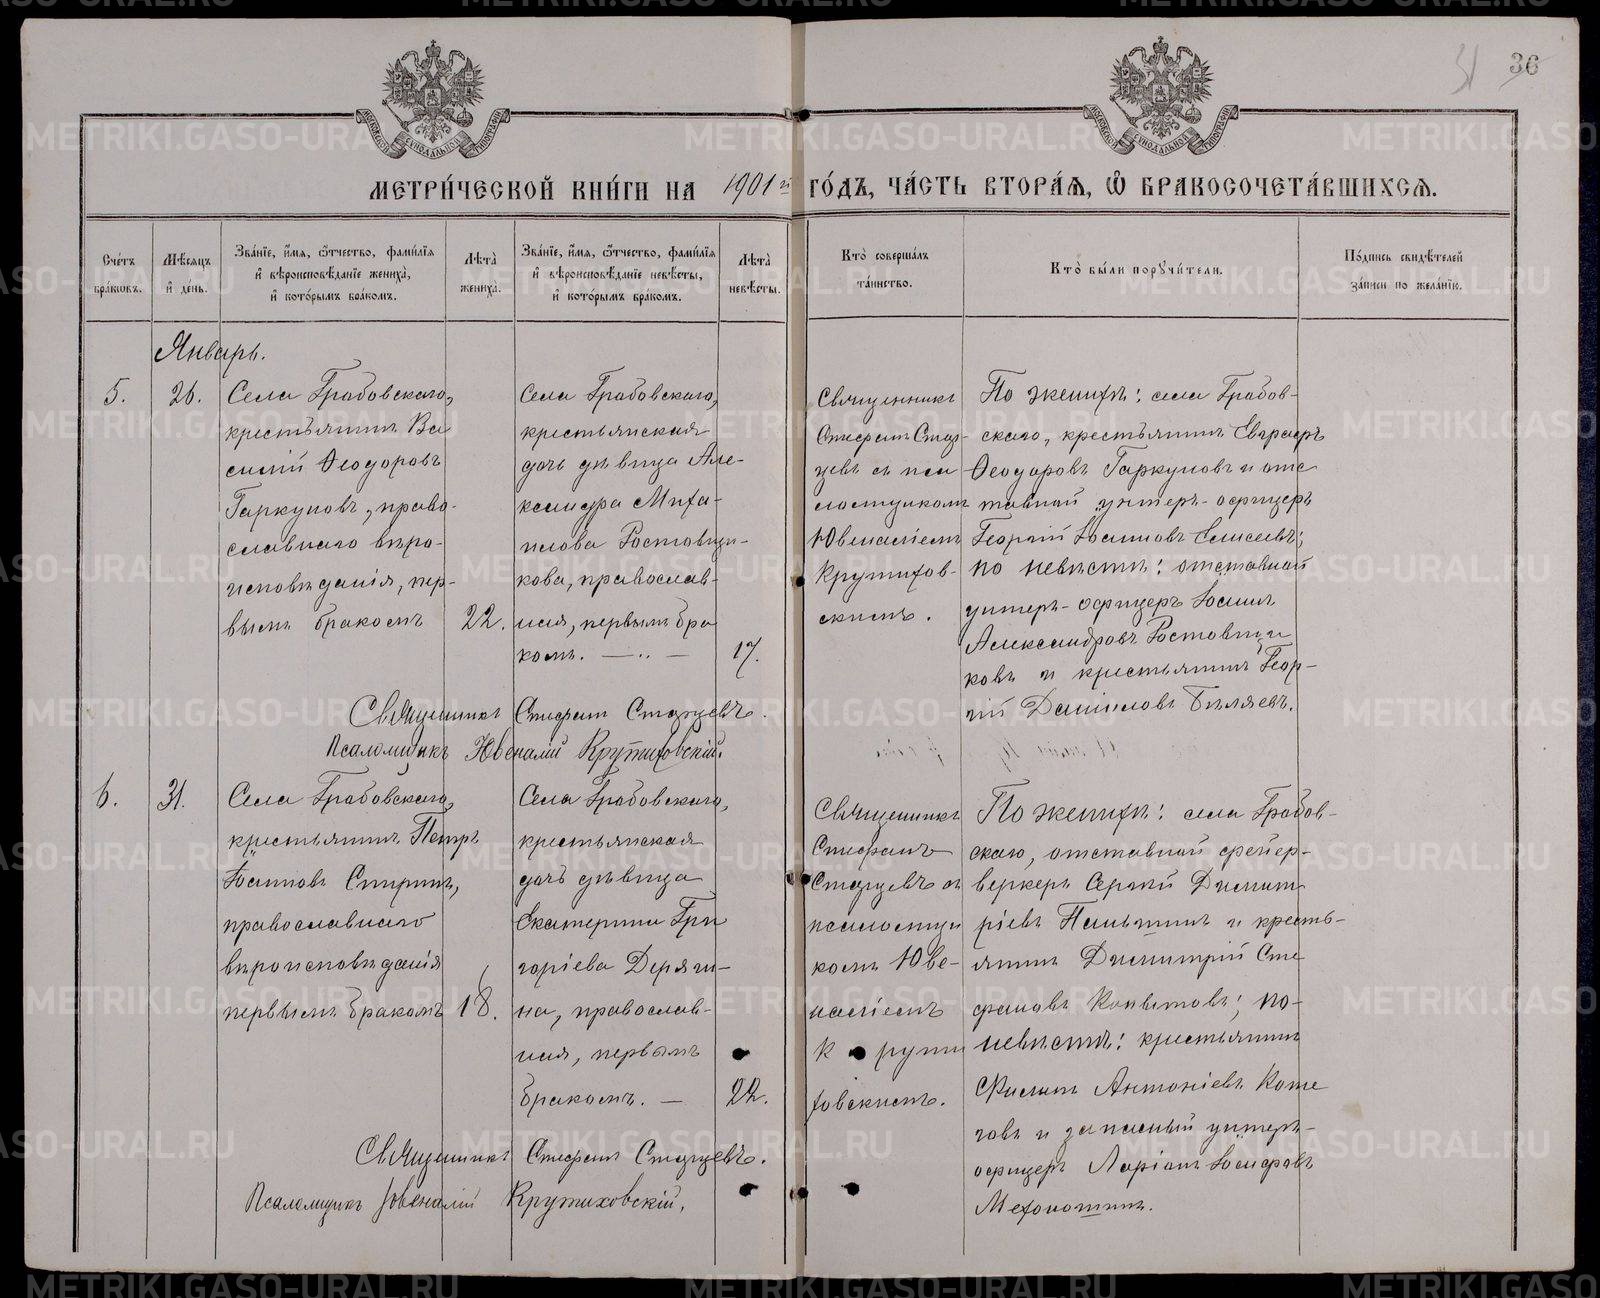 31 36
МЕТРИ́ЧЕСКОЙ КНИ́ГИ НА 1901й ГО́ДЪ, ЧА́СТЬ ВТОРА́Ѧ, Ѽ БРАКОСОЧЕТА́ВШИХСѦ.
Сче́тъ бра́ковъ.
Мѣ́сѧцъ и҆ де́нь.
Зва́нїе, и҆́мѧ, ѻ҆́тчество, фами́лїѧ и҆ вѣроисповѣ́данїе жениха̀, и҆ кото́рымъ бра́комъ.
Лѣ́та̀ жениха̀.
Зва́нїе, и҆́мѧ, ѻ҆́тчество, фами́лїѧ и҆ вѣроисповѣ́данїе невѣ́сты, и҆ кото́рымъ бра́комъ.
Лѣ́та̀ невѣ́сты.
Кто̀ соверша́лъ та́инство.
Кто̀ бы́ли порꙋчи́тели.
По́дпись свидѣ́телей за́писи по жела́нїю.
Январь.
5.
26.
Села Грабовскаго,
крестьянинъ Ва
силій Ѳеодоровъ
Гаркуновъ, право-
славнаго вѣро-
исповѣданія, пер-
вымъ бракомъ
22.
Села Грабовскаго,
крестьянская
дочь дѣвица Але-
ксандра Миха-
илова Ростовщи-
кова, православ-
ная, первымъ бра
комъ.
17.
Священникъ
Стефанъ Стар-
цевъ съ пса
ломщикомъ
Ювеналіемъ
Крутихов-
скимъ.
По женихѣ: села Грабов-
скаго, крестьянинъ Евграфъ
Ѳеодоровъ Гаркуновъ и отс
тавной унтеръ-офицеръ
Георгій Іоанновъ Елисеевъ;
по невѣстѣ: отставной
унтеръ-офицеръ Іоаннъ
Александровъ Ростовщи
ковъ и крестьянинъ Геор-
гій Даниловъ Бѣляевъ.
Священникъ Стефанъ Старцевъ.
Псаломщикъ Ювеналій Крутиховскій.
6.
31.
Села Грабовскаго,
крестьянинъ Петръ
Іоанновъ Спиринъ,
православнаго
вѣроисповѣданія
первымъ бракомъ
18.
Села Грабовскаго,
крестьянская
дочь дѣвица
Екатерина Гри
горіева Деряги-
на, православ-
ная, первымъ
бракомъ.
22.
Священникъ
Стефанъ
Старцевъ съ
псаломщи
комъ Юве-
наліемъ
Крути
ховскимъ.
По женихѣ: села Грабов-
скаго, отставной фейер-
веркеръ Сергій Димит
ріевъ Паньшинъ и кресть-
янинъ Димитрій Сте
фановъ Копытовъ; по-
невѣстѣ: крестьянинъ
Филипъ Антоніевъ Коте
говъ и запасный унтеръ-
офицеръ Ларіонъ Іосифовъ
Мехоношинъ.
Священникъ Стефанъ Старцевъ.
Псаломщикъ Ювеналій Крутиховскій.
METRIKI.GASO-URAL.RU